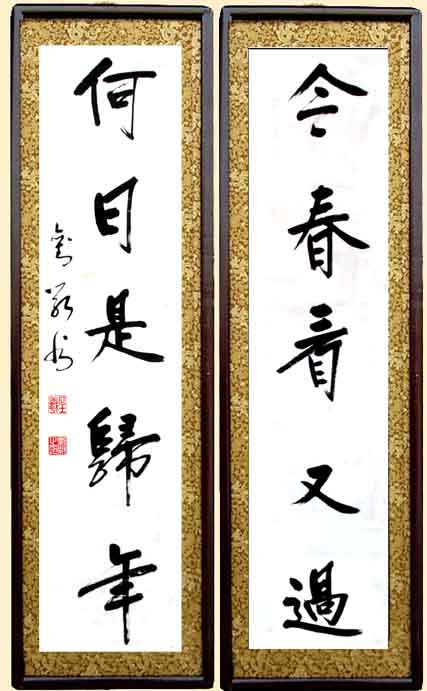 今春看又過
何日是歸年